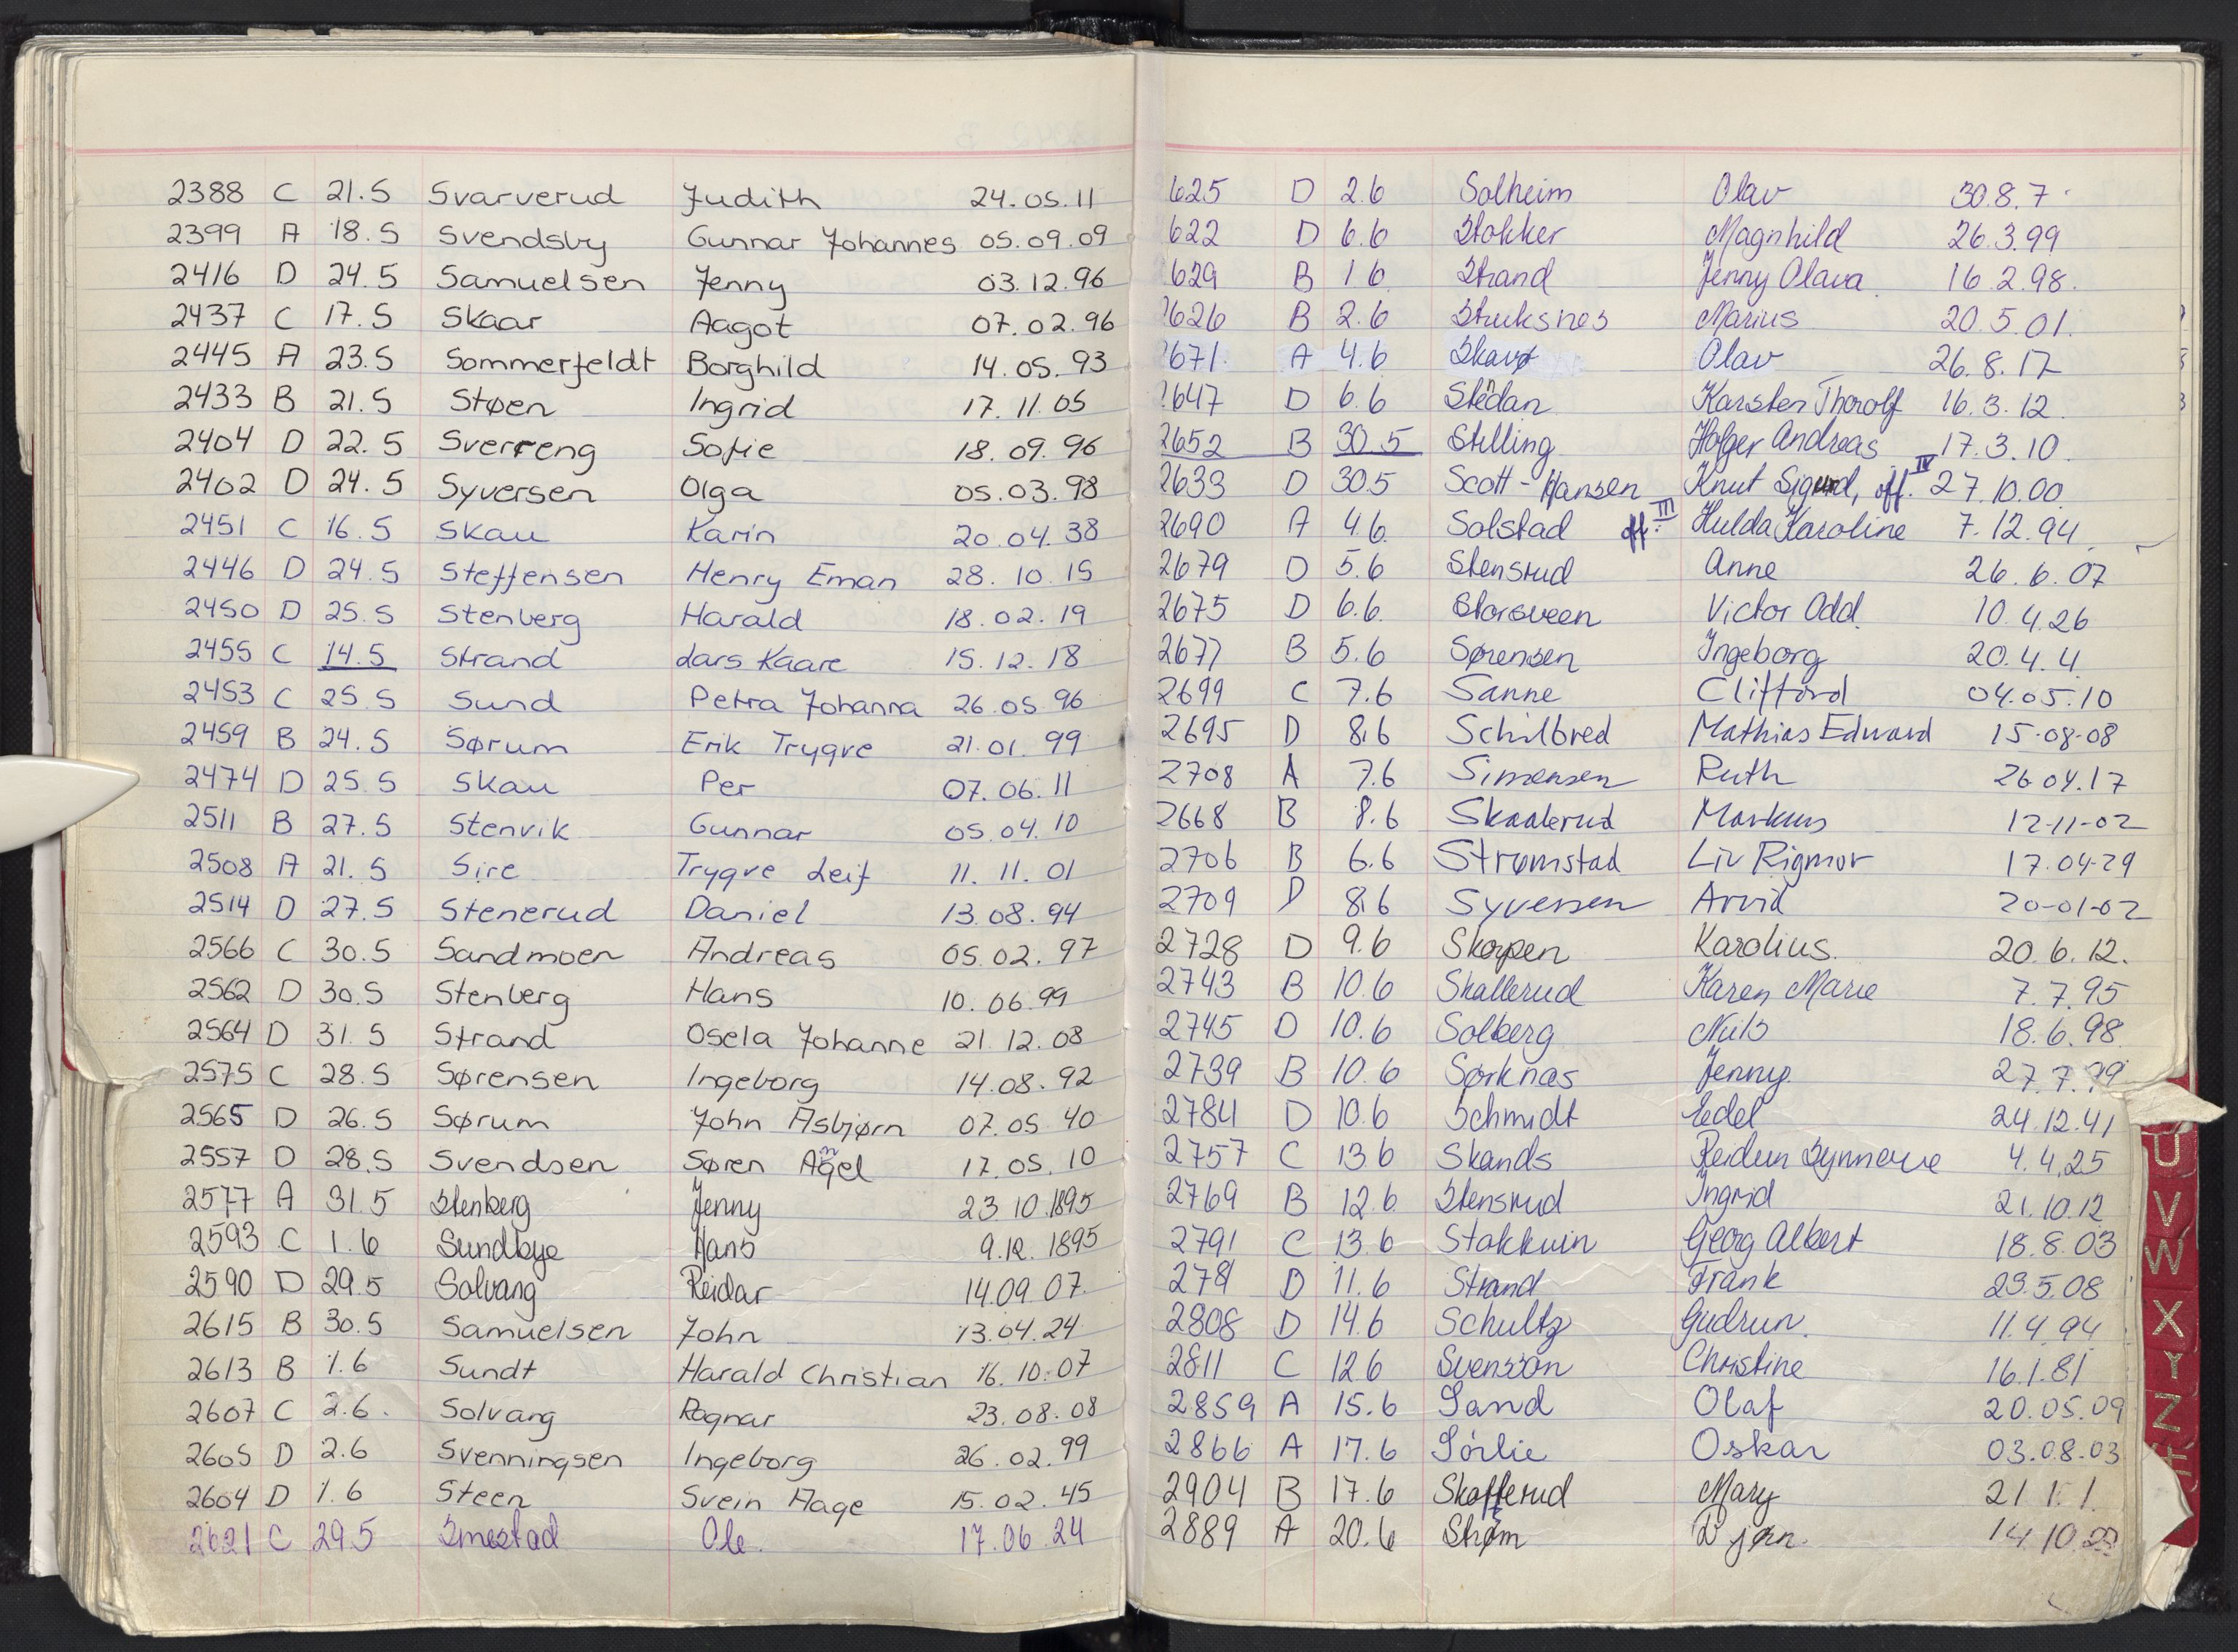 2388 C 21.5 Svarverud Judith 24.05.11
2399 A 18.5 Svendsby Gunnar Johannes 05.09.09
2416 D 24.5 Samuelsen Jenny 03.12.96
2437 C 17.5 Skaar Aagot 07.02.96
2445 A 23.5 Sommerfeldt Borghild 14.05.93
2433 B 21.5 Støen Ingrid 17.11.05
2404 D 22.5 Sverreng Sofie 18.09.96
2402 D 24.5 Syversen Olga 05.03.98
2451 C 16.5 Skau Karin 20.04.38
2446 D 24.5 Steffensen Henry Eman 28.10.15
2450 D 25.5 Stenberg Harald 18.02.19
2455 C 14.5 Strand Lars Kaare 15.12.18
2453 C 25.5 Sund Petra Johanna 26.05.96
2459 B 24.5 Sørum Erik Trygve 21.01.99
2474 D 25.5 Skau Per 07.06.11
2511 B 27.5 Stenvik Gunnar 05.04.10
2508 A 21.5 Sire Trygve Leif 11.11.01
2514 D 27.5 Stenerud Daniel 13.08.94
2566 C 30.5 Sandmoen Andreas 05.02.97
2562 D 30.5 Stenberg Hans 10.06.99
2564 D 31.5 Strand Osela Johanne 21.12.08
2575 C 28.5 Sørensen Ingeborg 14.08.92
2565 D 26.5 Sørum John Asbjørn 07.05.40
2557 D 28.5 Svendsen Søren 17.05.10
2577 A 31.5 Stenberg Jenny 23.10.1895
2593 C 1.6 Sundbye Hans 9.12.1895
2590 D 29.5 Solvang Reidar 14.09.07.
2615 B 30.5 Samuelsen John 13.04.24
2613 B 1.6 Sundt Harald Christian 16.10.07
2607 C 2.6. Solvang Ragnar 23.08.08
2605 D 2.6 Svenningsen Ingeborg 26.02.99
2604 D 1.6 Steen Svein Aage 15.02.45
2621 C 29.5 Smestad Ole 17.06.24
625 D 2.6 Solheim Olav 30.8.7
622 D 6.6 Stokker Magnhild 26.3.99
629 B 1 6 Strand Jenny Olava 16.2.98.
626 B 2.6 Struksnes Marius 20.5.01.
671. A 4.6 Olav 26.8.17
647 D 6.6 Karsten Thorolf 16.3.12.
2652 B 30.5 Stilling Holger Andreas 17.3.10.
2633 D 30.5 Scott-Hansen Knut Sigurd, off. IV 27.10.00.
2690 A 4.6. Solstad off. III Hulda Karoline 7.12.94
2679 D 5.6 Stensrud Anne 26.6.07
2675 D 6.6. Storsveen Victor Odd. 10.4.26
2677 B 5.6 Sørensen Ingeborg 20.4.4
2699 C 7.6 Sanne Clifford 04.05.10
2695 D 8.6 Schilbred Mathias Edward 15-08-08
2708 A 7.6 Simensen Ruth 26 04.17
2668 B 8.6 Skaalerud Markus 12-11-02
2706 B 6.6 Strømstad Liv Rigmor 17.04-29
2709 D 8.6 Syversen Arvid 20-01-02
2728 D 9.6 Skorpen Karolius. 20.6.12.
2743 B 10.6 Skallerud Karen Marie 7.7.95
2745 D 10.6 Solberg Nils 18.6.98
2739 B 10.6 Sørknas Jenny 27.7.99
2784 D 10.6 Schmidt Edel 24.12.41
2757 C 13 6 Skands Reidun Synnøve 4.4.25
2769 B 12.6 Stensrud Ingrid 21.10.12
2791 C 13.6 Stokkvin Georg Albert 18.8.03
D 11.6 Strand Frank 23.5.08
2808 D 14.6 Schultz Gudrun. 11.4.94
2811 C 12.6 Svensson Christine 16.1.81
2859 A 15.6 Sand Olaf 20.05.09
2866 A 17.6 Sörlie Oskar 03.08.03
2904 B 17.6 Mary 21 1. 1.
2889 A 20.6 Strøm Bjørn. 14.10.
U
V
W
X
Y
Z